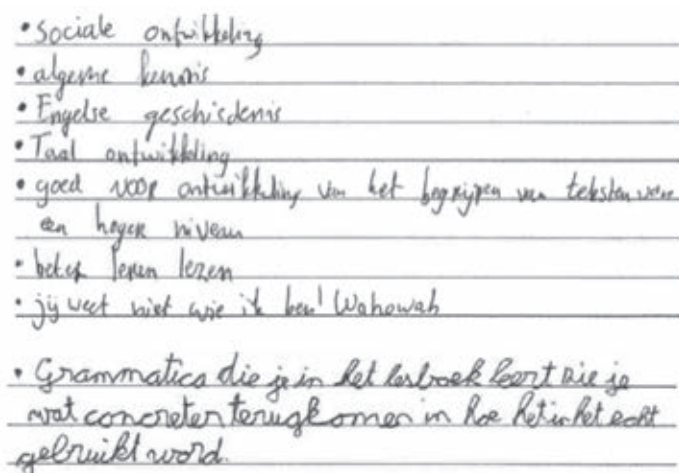 • sociale ontwikkeling
• algemene kennis
• Engelse geschiedenis
• Taal ontwikkeling
• goed voor ontwikkeling van het begrijpen van teksten van
een hoger niveau
• beter leren lezen
• jij weet niet wie ik ben! Wahowah
• Grammatica die je in het lesboek leert zie je
wat concreter terugkomen in hoe het in het echt
gebruikt word.